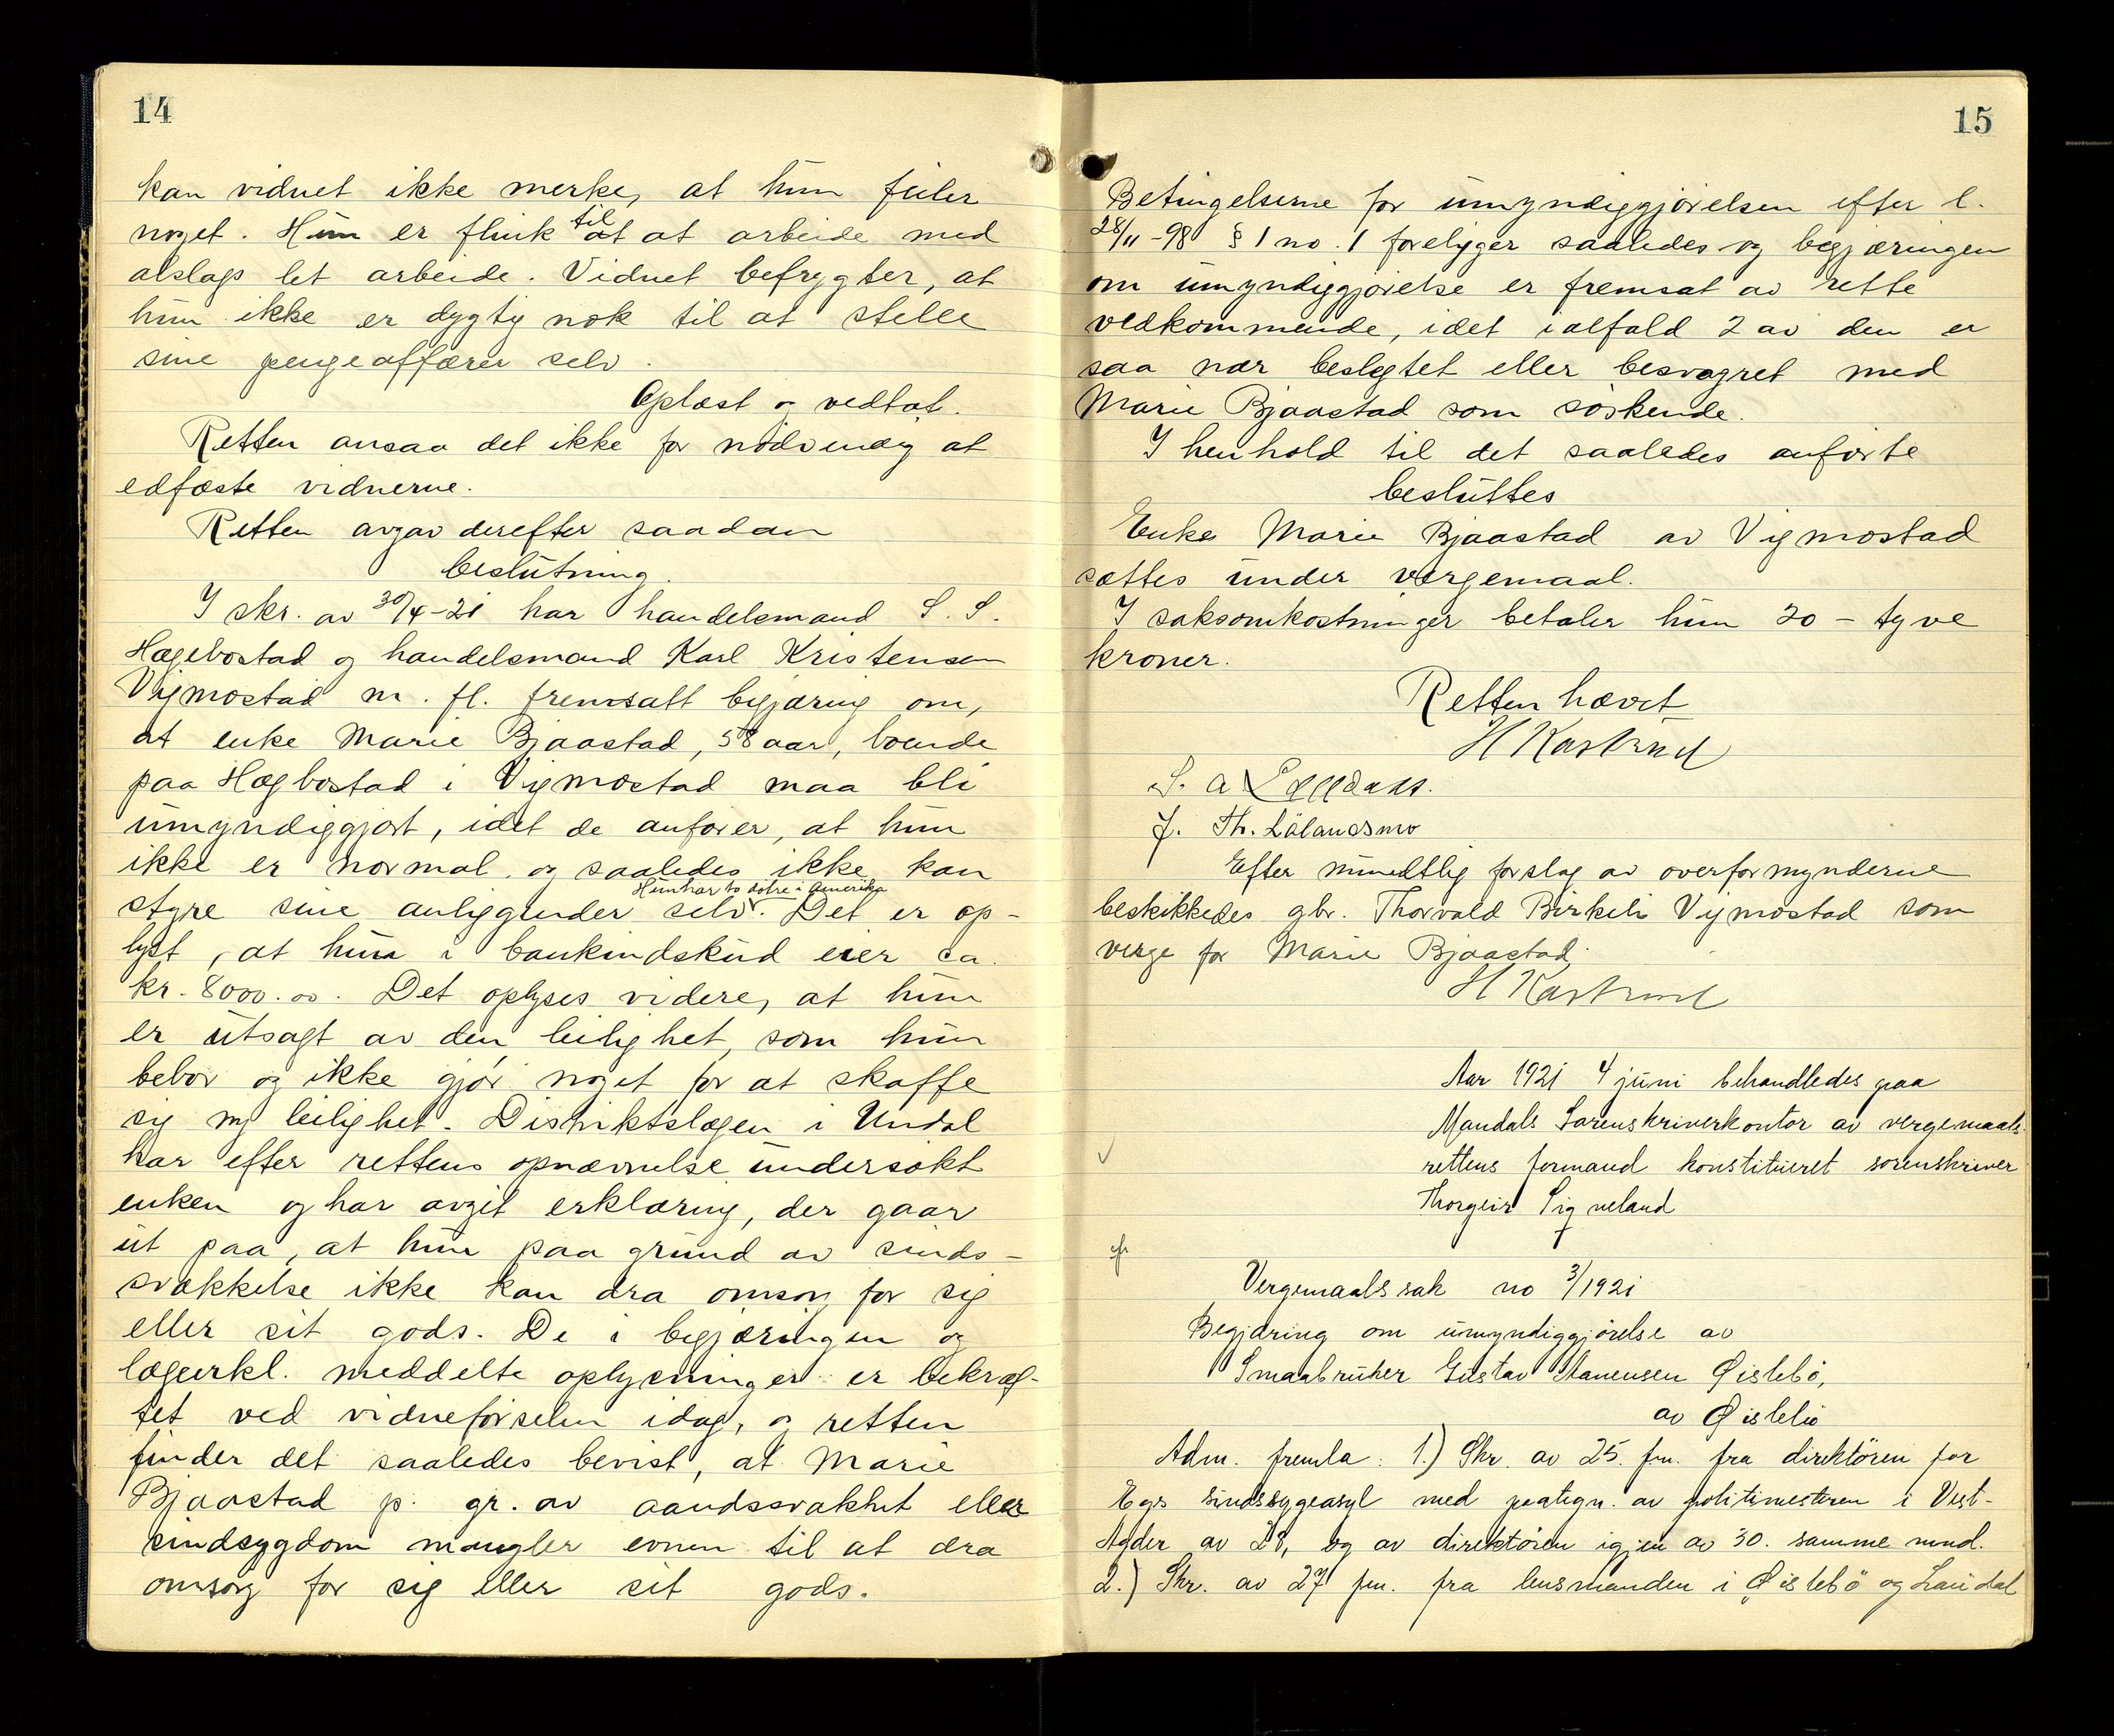 14
kan vidnet ikke merke, at hun feiler
noget. Hun er flink til at at arbeide med
alslags let arbeide. Vidnet befrygter, at
hun ikke er dygtig nok til at stelle
sine pengeaffærer selv.
Oplæst og vedtat.
Retten ansaa det ikke for nödvendig at
edfæste vidnerne.
Retten avgav derefter saadan
beslutning.
I skr. av 30/4-21 har handelsmand S. S.
Hægebostad og handelsmand Karl Kristensen
Vigmostad m. fl. fremsatt begjæring om,
at enke Marie Bjaastad, 58 aar, boende
paa Hægbostad i Vigmostad maa bli
umyndiggjort, idet de anforer, at hun
ikke er normal og saaledes ikke kan
Hun har to dotre i Amerika
styre sine anliggender selv. Det er op-
lyst, at hun i bankindskud eier ca.
kr. 8000.00. Det oplyses videre, at hun
er utsagt av den leilighet, som hun
bebor og ikke gjör noget for at skaffe
sig ny leilighet. Distriktslægen i Undal
har efter rettens opnævnelse undersökt
enken og har avgit erklæring, der gaar
ut paa, at hun paa grund av sinds-
svækkelse ikke kan dra omsorg for sig
eller sit gods. De i begjæringen og
lægeerkl. meddelte oplysninger er bekræf-
tet ved vidneförselen idag, og retten
finder det saaledes bevist, at Marie
Bjaastad p. gr. av aandssvakhet eller
sindsygdom mangler evnen til at dra
omsorg for sig eller sit gods.
15
Betingelserne for umyndiggjörelsen efter l.
28/11-98 § 1 no. 1 foreligger saaledes og begjæringen
om umyndiggjörelse er fremsat av rette
vedkommende, idet ialfald 2 av den er
saa nær beslegtet eller besvogret med
Marie Bjaastad som söskende.
I henhold til det saaledes anförte
besluttes
Enke Marie Bjaastad av Vigmostad
sættes under vergemaal.
I saksomkostninger betaler hun 20 - tyve
kroner.
Retten hævet
H Kastrud
S. A.
J. Th. Lålandsmo
Efter mundtlig forslag av overformynderne
beskikkedes gbr. Thorvald Birkeli Vigmostad som
verge for Marie Bjaastad.
H Kastrud
Aar 1921 4 juni behandledes paa
Mandals Sorenskriverkontor av vergemaals-
rettens formand konstitueret sorenskriver
Thorgeir Sigveland
Vergemaalssak no 3/1921
Begjæring om umyndiggjörelse av
Smaabruker Gustav Aanensen Øislebö,
av Øislebö
Adm. fremla: 1.) Skr. av 25. fm. fra direktören for
Egs sindssygeasyl med paategn. av politimesteren i Vest-
Agder av 28, og av direktören igjen av 30. samme mnd.
2.) Skr. av 27 fm. fra lensmanden i Øislebö og Laudal